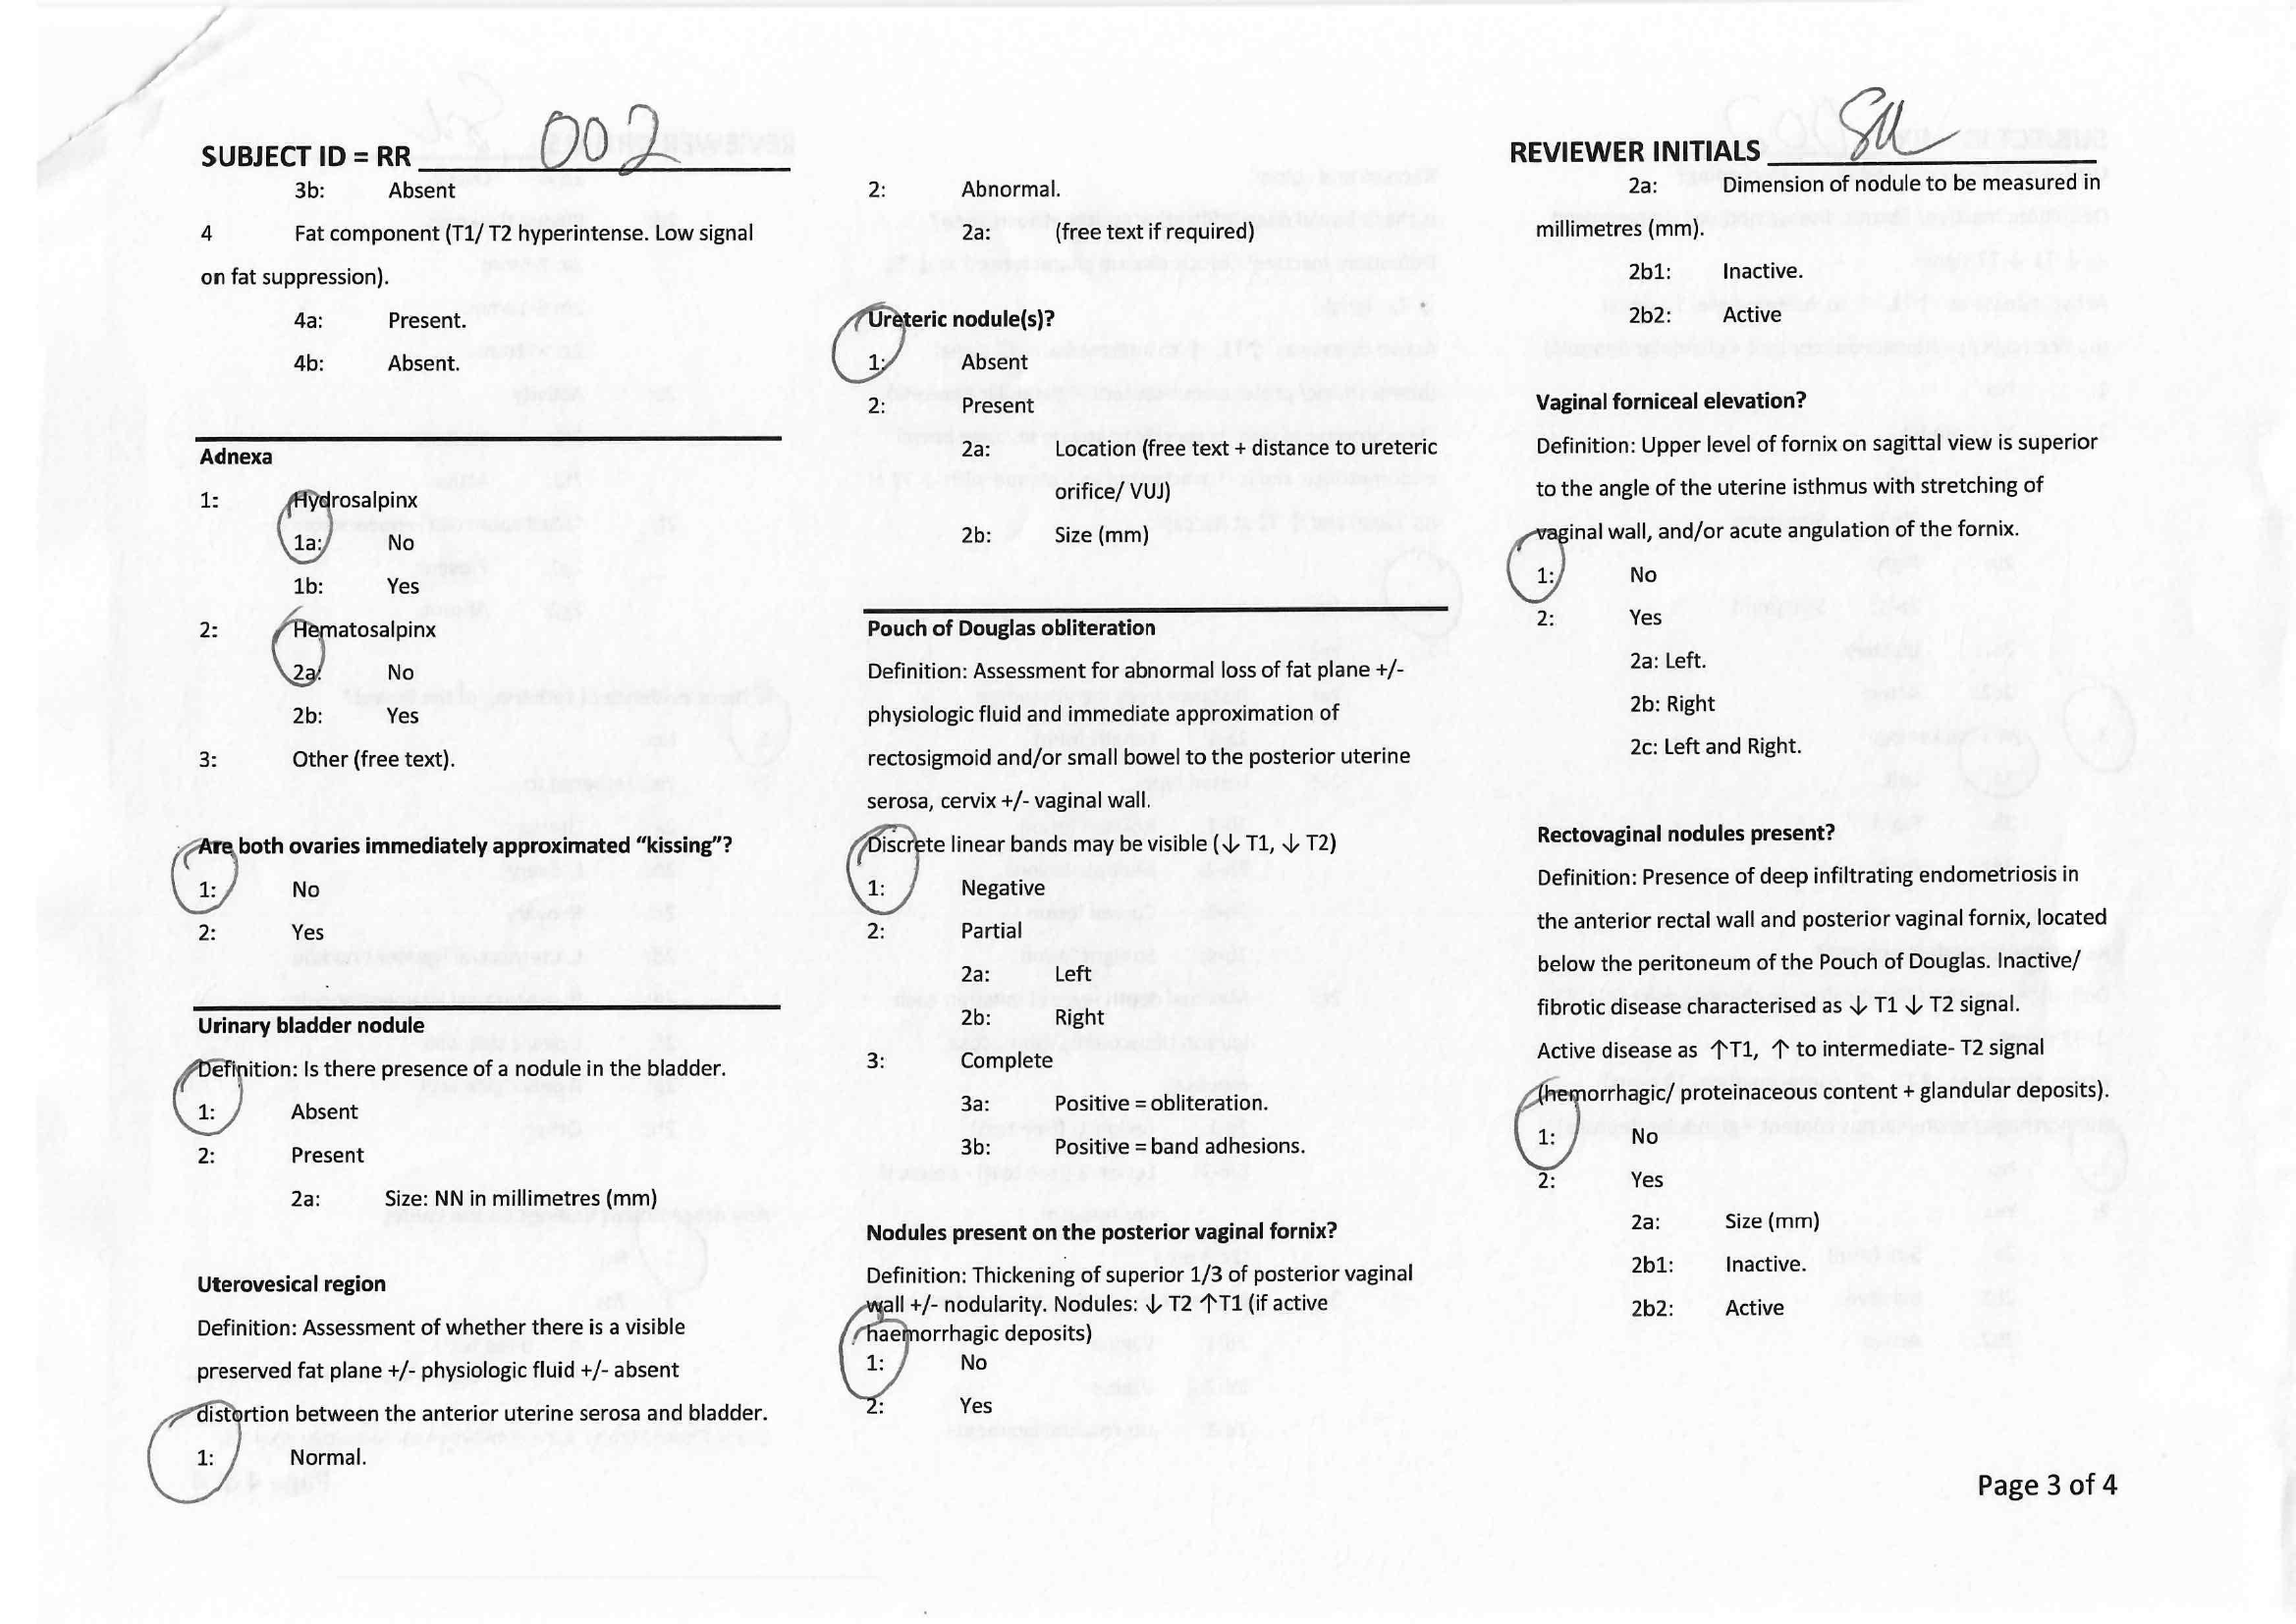 SUBJECT ID = RR 002
3b: Absent
4 Fat component (T1/ T2 hyperintense. Low signal
on fat suppression).
4a: Present.
4b: Absent.
Adnexa
1: Hydrosalpinx
1a: No
1b: Yes
2: Hematosalpinx
2a: No
2b: Yes
3: Other (free text).
Are both ovaries immediately approximated “kissing”?
1: No
2: Yes
Urinary bladder nodule
Definition: Is there presence of a nodule in the bladder.
1: Absent
2: Present
2a: Size: NN in millimetres (mm)
Uterovesical region
Definition: Assessment of whether there is a visible
preserved fat plane +/- physiologic fluid +/- absent
distortion between the anterior uterine serosa and bladder.
1: Normal.
2: Abnormal.
2a: (free text if required)
Ureteric nodule(s)?
1: Absent
2: Present
2a: Location (free text + distance to ureteric
orifice/ VUJ)
2b: Size (mm)
Pouch of Douglas obliteration
Definition: Assessment for abnormal loss of fat plane +/-
physiologic fluid and immediate approximation of
rectosigmoid and/or small bowel to the posterior uterine
serosa, cervix +/- vaginal wall.
Discrete linear bands may be visible (↓ T1, ↓ T2)
1: Negative
2: Partial
2a: Left
2b: Right
3: Complete
3a: Positive = obliteration.
3b: Positive = band adhesions.
Nodules present on the posterior vaginal fornix?
Definition: Thickening of superior 1/3 of posterior vaginal
wall +/- nodularity. Nodules: ↓ T2 ↑T1 (if active
haemorrhagic deposits)
1: No
2: Yes
REVIEWER INITIALS
2a: Dimension of nodule to be measured in
millimetres (mm).
2b1: Inactive.
2b2: Active
Vaginal forniceal elevation?
Definition: Upper level of fornix on sagittal view is superior
to the angle of the uterine isthmus with stretching of
vaginal wall, and/or acute angulation of the fornix.
1: No
2: Yes
2a: Left.
2b: Right
2c: Left and Right.
Rectovaginal nodules present?
Definition: Presence of deep infiltrating endometriosis in
the anterior rectal wall and posterior vaginal fornix, located
below the peritoneum of the Pouch of Douglas. Inactive/
fibrotic disease characterised as ↓ T1 ↓ T2 signal.
Active disease as ↑T1, ↑ to intermediate- T2 signal
(hemorrhagic/ proteinaceous content + glandular deposits).
1: No
2: Yes
2a: Size (mm)
2b1: Inactive.
2b2: Active
Page 3 of 4